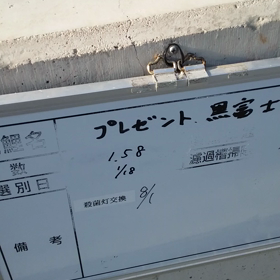 鯉名 プレゼント. 黒富士
数 1.58 濾過槽掃
選別日 1/18
殺菌灯交換 8/1
備考